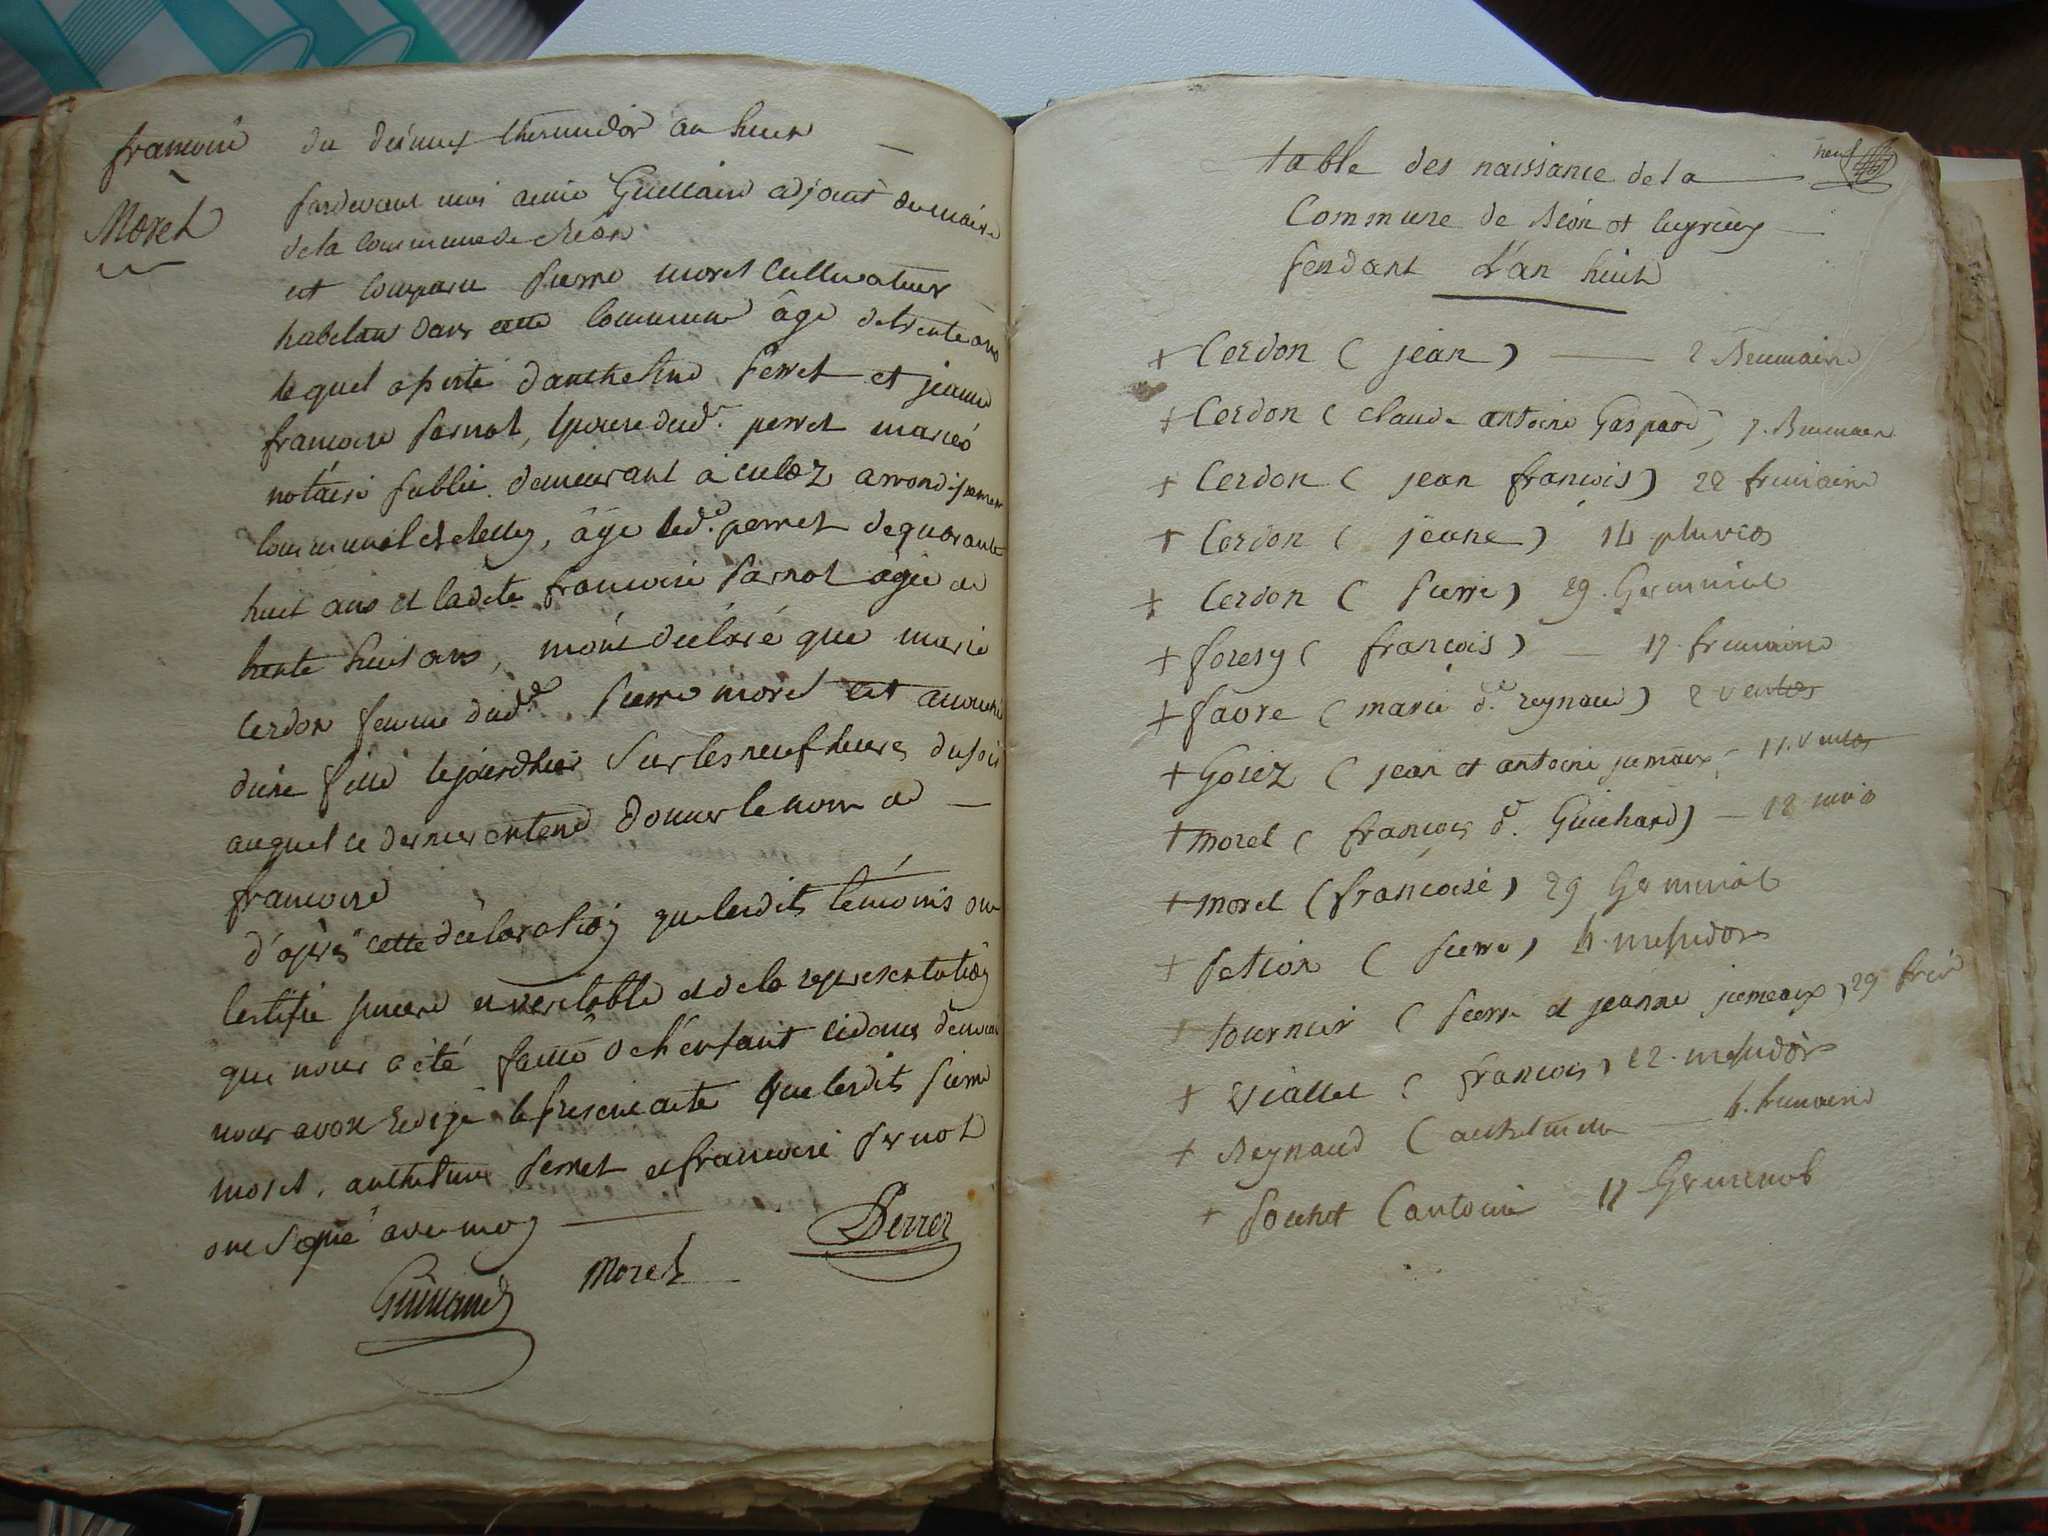 françoise
Morel
du deuxieux thermidor an huit
pardevant moi aimé Guillaind adjoint du maire
de la commune de Béon
est comparu pierre morel Cultivateur
habitant dans cette commune âgé de trente ans
lequel assisté d'anthelme perret et jeanne
françoise parnot, épouse dud.t perret mariés
notaire public demeurant à culoz arrondissement
communal de belley, âgé led.t perret de quarante
huit ans et ladite françoise parnot agée de
trente huit ans, m'ont déclaré que marie
Cerdon femme dud.t pierre morel est accouché
d'une fille le jourdhier sur les neuf heures du soir
auquel ce dernier entend donner le nom de
françoise
d'après cette déclaration que lesdits témoins ont
Certifié sincere et veritable et de la representation
qui nous a été faitte de l'enfant cidessus denommé
nous avons redigé le present acte que lesdits pierre
morel, anthelme perret et françoise pernot
ont signé avec moy
Perret
Morel
Guillaind
neuf
table des naissance de la
Commune de Béon et luyrieux
pendant L'an huit
+ Cerdon ( jean ) 2 Brumaire
+ Cerdon ( claude antoine Gaspard ) 7. Brumaire
+ Cerdon ( jean françois ) 22 frimaire
+ Cerdon ( jeane ) 14 pluvios
+ Cerdon ( pierre ) 29. Germinal
+ foresy ( françois ) 17. frimaire
+ favre ( marie d.e reynaud ) 2 ventos
+ Goiez ( jean et antoine jumaux ) 11. ventos
+ morel ( françois d.t Guichard ) 18 nivo
+ morel ( françoise ) 29 Germinal
+ petion ( pierre ) 4. messidor
+ tournier ( pierre et jeanne jumeaux ) 29 frui
+ viallet ( françois ) 22. messidor
+ Reynaud ( anthelmette 4. frimaire
+ pochet ( antoine 17 Germinal